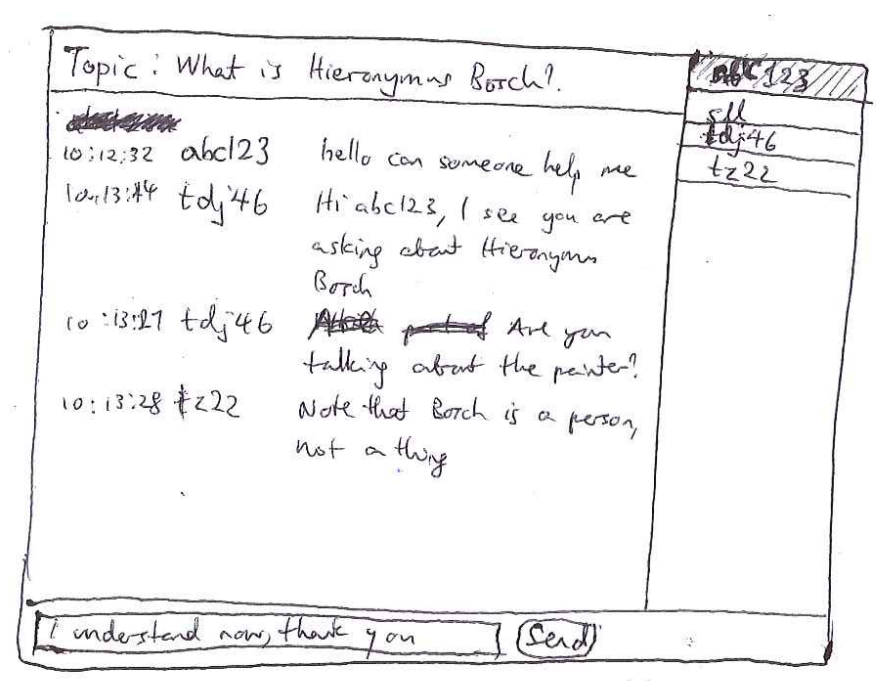 Topic: What is Hieronymus Bosch?
abc123
sfl
tdj46
tz22
10:12:32 abc123 hello can someone help me
10:13:14 tdj46 Hi abc123, I see you are
asking about Hieronymus
Bosch
10:13:27 tdj46 Are you
talking about the painter?
10:13:28 tz22 Note that Bosch is a person,
not a thing
I understand now, thank you
Send